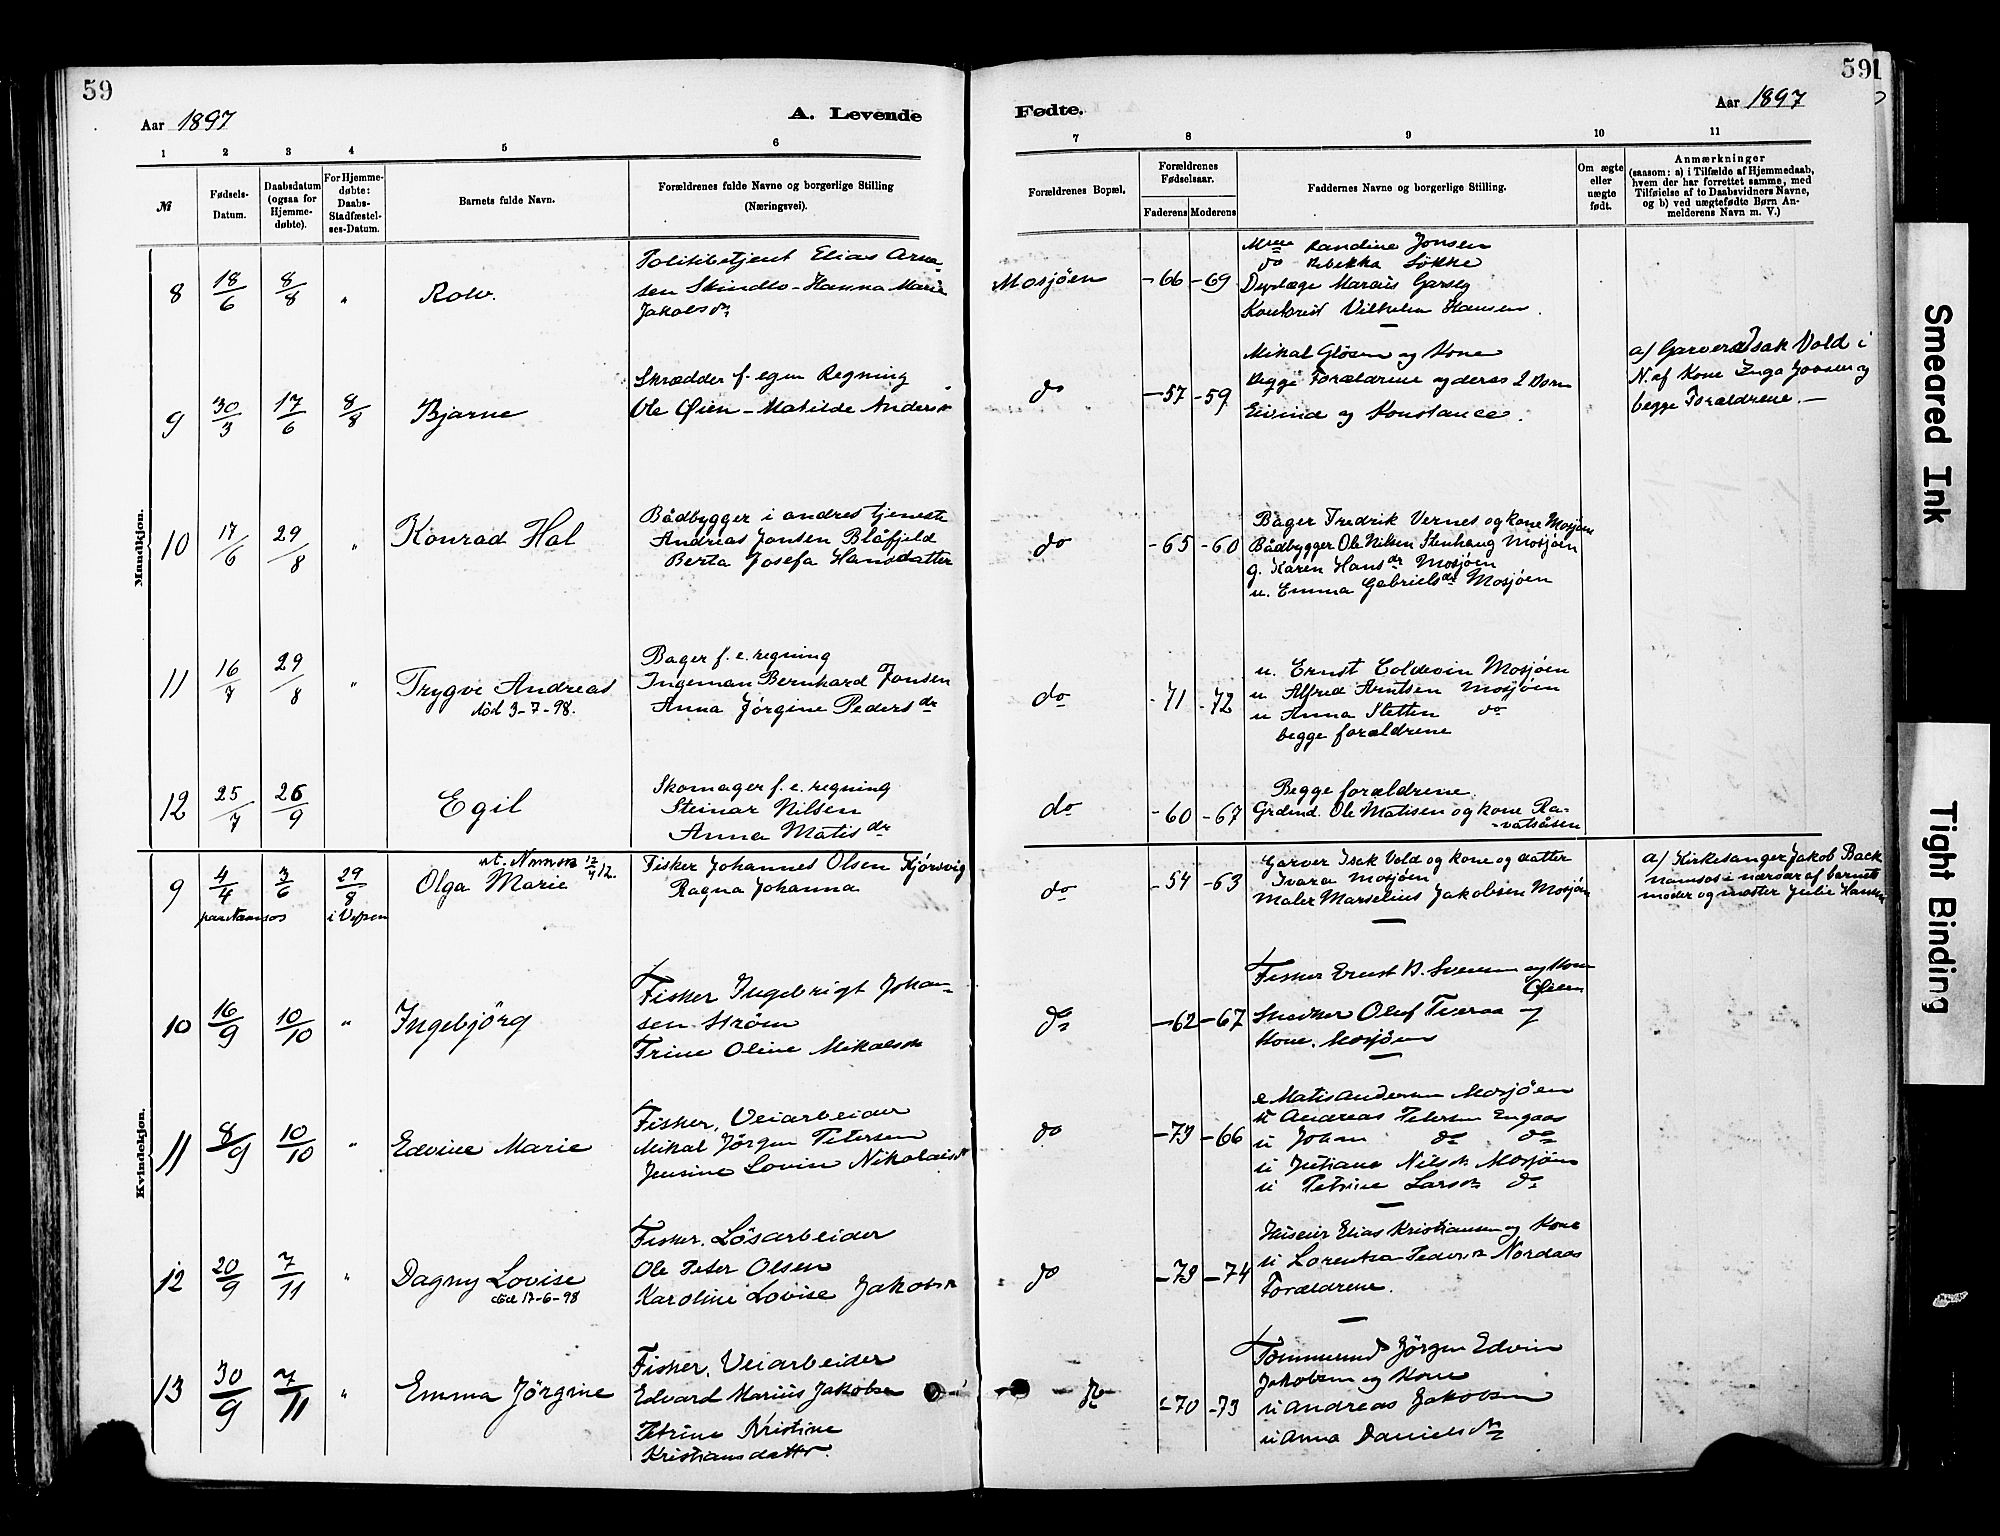 59
591
Aar 1897
A. Levende
Fødte.
Aar 1897
1 2 3 4 5 6 7 8 9 10 11
№
Fødsels-
Datum.
Daabsdatum
(ogsaa for
Hjemme-
døbte).
For Hjemme-
døbte:
Daabs-
Stadfæstel-
ses-Datum.
Barnets fulde Navn.
Forældrenes fulde Navne og borgerlige Stilling
(Næringsvei).
Forældrenes Bopæl.
Forældrenes
Fødselsaar.
Faderens Moderens
Faddernes Navne og borgerlige Stilling.
Om ægte
eller
uægte
født.
Anmærkninger
(saasom: a) i Tilfælde af Hjemmedaab,
hvem der har forrettet samme, med
Tilføielse af to Daabsvidners Navne,
og b) ved uægtefødte Børn An-
melderens Navn m. V.)
Mandkjøn.
8 18/6 8/8 "
Rolv.
Politibetjent Elias Arne
sen Skindlo - Hanna Marie
Jakobsdr
Mosjöen
-66 -69
Randine Jonsen
do Rebekka Løkke
Marius Garseg
Vilhelm Hansen.
9 30/3 17/6 8/8
Bjarne
Skrædder f. egen Regning
Ole Øien - Matilde Andersdr
do
-57 -59
Mikal Glösen og Kone
begge Forældrene og deres 2 Börn
Eivind og Konstance.
a) Garver Isak Vold i
N. af Kone Inga Jonsen og
begge Forældrene. -
10 17/6 29/8 "
Konrad Hal
Bådbygger i andres tjeneste
Andreas Jonsen Blåfjeld
Berta Josefa Hansdatter
do
-65 -60
Bager Fredrik Vernes og kone Mosjøen
Bådbygger Ole Nilsen Stenhaug Mosjøen
g. Karen Hansdr Mosjøen
u. Emma Gabrielsdr Mosjøen
11 16/7 29/8 "
Trygve Andreas
död 3-7-98.
Bager f. e. regning
Ingeman Bernhard Jonsen
Anna Jørgine Pedersdr
do
-71 -72
u. Ernst Coldevin Mosjøen
u. Alfred Arntsen Mosjøen
u Anna Sletten do
begge forældrene
12 25/7 26/9
Egil
Skomager f. e. regning
Steinar Nilsen
Anna Matisdr
do
-60 -67
Begge forældrene.
Grdmd. Ole Matisen og kone Ra-
-vatsåsen
Kvindekjøn.
9 4/4 3/6 29/8
paa Namsos i Vefsen
Olga Marie
Fisker Johannes Olsen Kjørsvig
Ragna Johanna
do
-54 -63
Garver Isak Vold og kone og datter
Ivara Mosjøen
Maler Marselius Jakobsen Mosjøen
a) Kirkesanger Jakob Back
Namsos i nærvær af barnets
moder og moster Julie Hansen
10 16/9 10/10 "
Ingebjörg
Fisker Ingebrigt Johan-
sen Strøm
Trine Oline Mikalsdr
do
-62 -67
Fisker Ernst B. Svensen og Kone
Øien
Snedker Olof Tveraa og
Kone. Mosjöen
11 8/9 10/10 "
Edvine Marie
Fisker, Veiarbeider
Mikal Jørgen Petersen
Jensine Lovin Nikolaisdr
do
-73 -66
e Matis Andersen Mosjöen
u Andreas Petersen Engaas
u Johan do do
u Juliane Nilsdr Mosjöen
u Petrine Larsdr do
12 20/9 7/11 "
Dagny Lovise
död 17-6-98
Fisker. Lösarbeider
Ole Peter Olsen
Karoline Lovise Jakobsdr
do
-73 -74
Huseier Elias Kristiansen og Kone
u Lorentsa Pedersdr Nordaas
Forældrene.
13 30/9 7/11 "
Emma Jörgine
Fisker, Veiarbeider
Edvard Marius Jakobsen
Petrine Kristine
Kristiansdatter.
do
-70 -73
Tömmermd Jörgen Edvin
Jakobsen og Kone
u Andreas Jakobsen
u Anna Danielsdr
Smeared Ink
Tight Binding